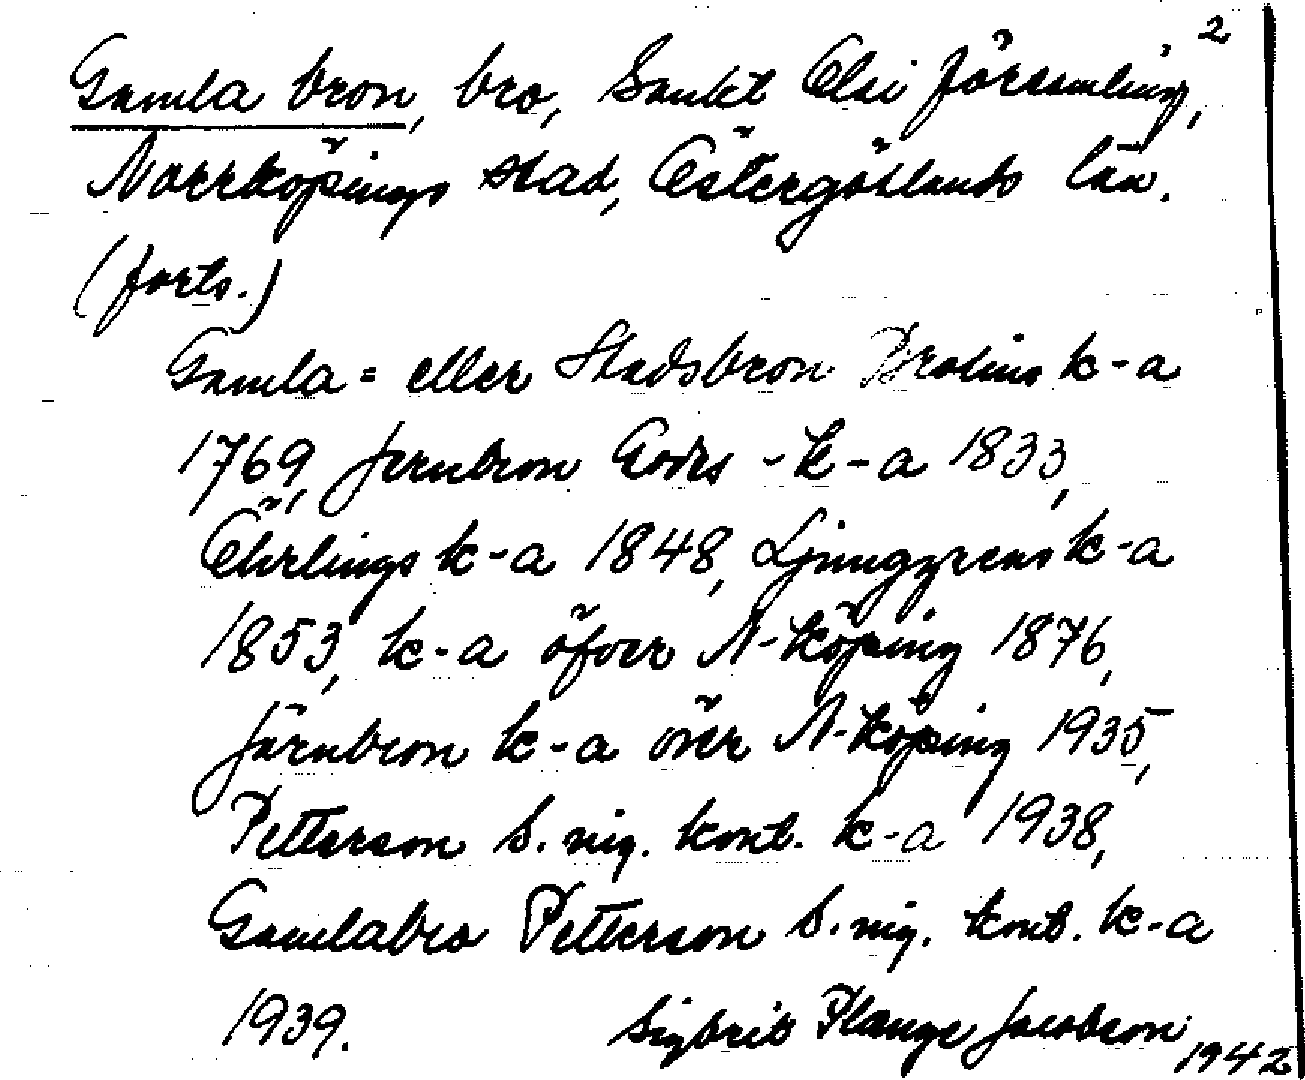 2
Gamla bron, bro, Sankt Olai församling,
Norrköpings stad, Östergötlands län.
(forts.)
Gamla= eller Stadsbron Brolins k-a
1769, Jernbron Godes-k-a 1833,
Öhrlings k-a 1848, Ljunggrens k-a
1853, k-a öfver N-köping 1876,
Järnbron k-a över N-köping 1935,
Petterson S. nig. kont. k-a 1938,
Gamlabro Petterson S. nig. kont. k-a
1939. Sigbrit Plange Jacobson
1942